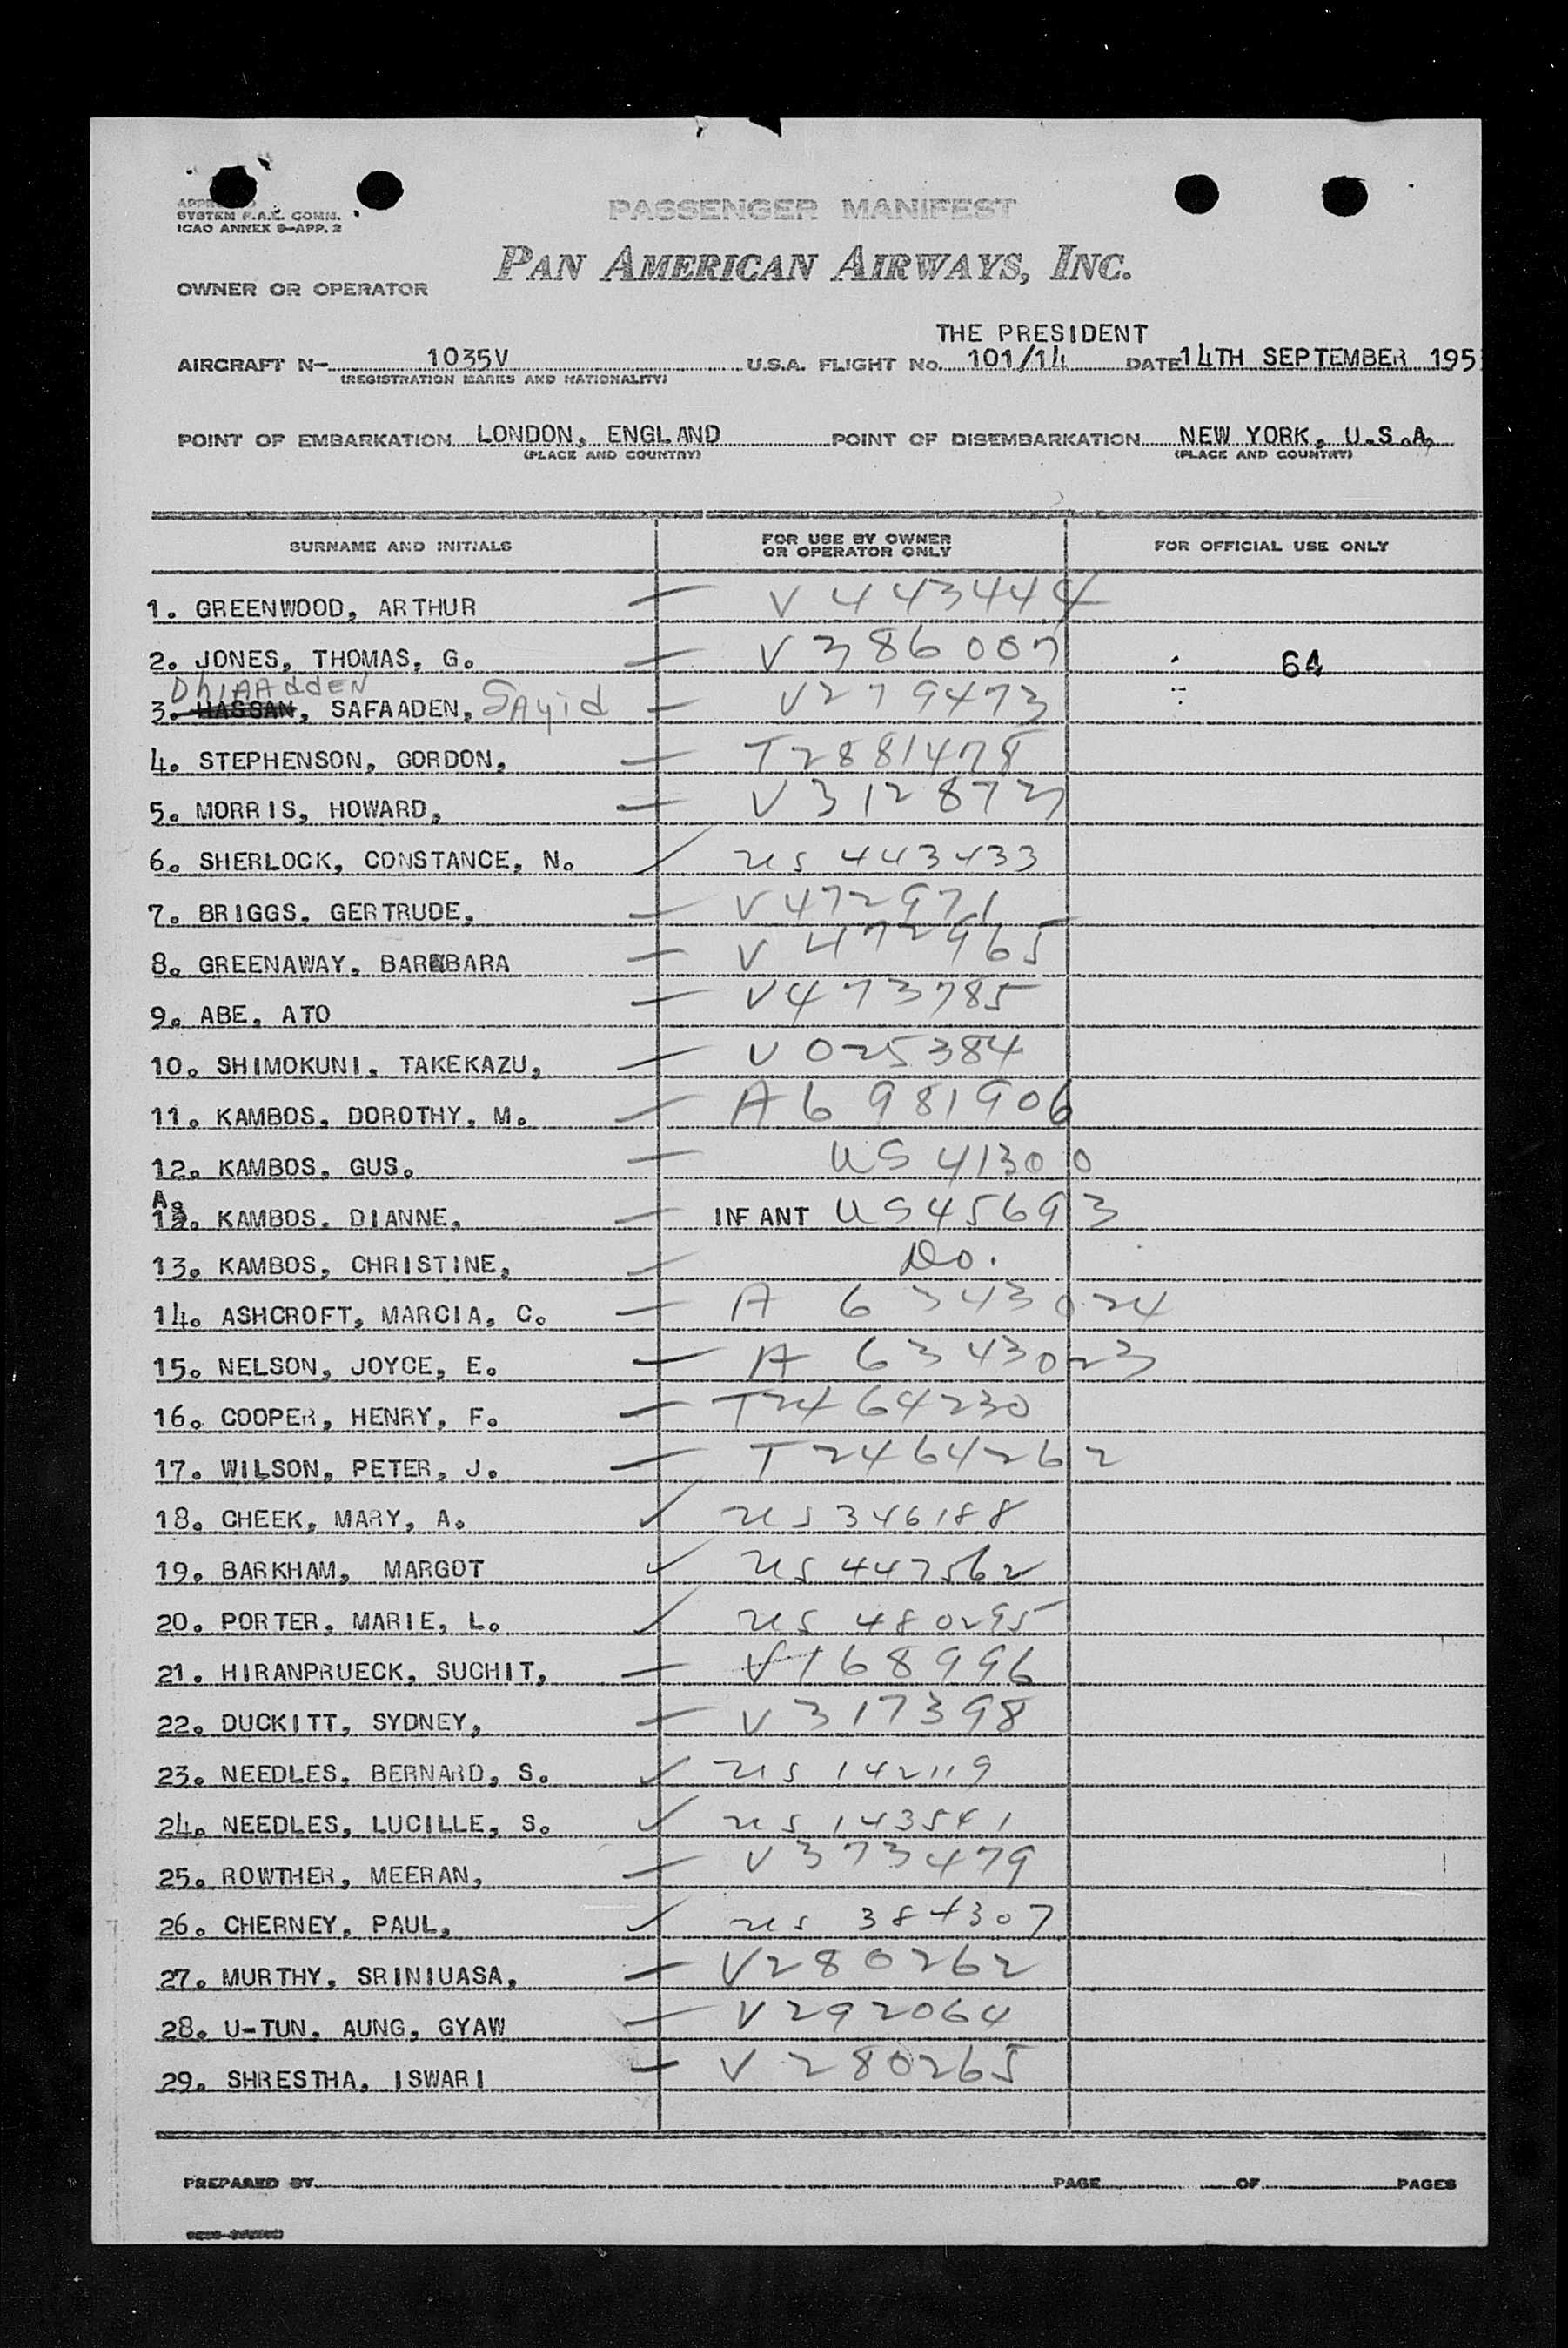 PASSENGER MANIFEST
SYSTEM F.A.L. COMM.
ICAO ANNEX 9-APP. 2
PAN AMERICAN AIRWAYS, INC.
OWNER OR OPERATOR
THE PRESIDENT
AIRCRAFT N- 1035V U.S.A. FLIGHT No. 101/14 DATE 14TH SEPTEMBER 195
(REGISTRATION MARKS AND NATIONALITY)
POINT OF EMBARKATION LONDON, ENGLAND POINT OF DISEMBARKATION NEW YORK, U.S.A.
(PLACE AND COUNTRY) (PLACE AND COUNTRY)
SURNAME AND INITIALS FOR USE BY OWNER OR OPERATOR ONLY FOR OFFICIAL USE ONLY
1. GREENWOOD, ARTHUR — V 443444
2. JONES, THOMAS, G. — V 386007 64
DhiAAddEN
3. HASSAN, SAFAADEN, SAyid — V279473
4. STEPHENSON, GORDON, — T2881478
5. MORRIS, HOWARD, — V312873
6. SHERLOCK, CONSTANCE, N. ✓ us 443433
7. BRIGGS, GERTRUDE, — V472971
8. GREENAWAY, BARBARA — V 472965
9. ABE, ATO — V473785
10. SHIMOKUNI, TAKEKAZU, — V 025384
11. KAMBOS, DOROTHY, M. — A6 981906
12. KAMBOS, GUS. — US 41300
12A. KAMBOS, DIANNE, — INFANT US45693
13. KAMBOS, CHRISTINE, — Do.
14. ASHCROFT, MARCIA, C. — A 6343024
15. NELSON, JOYCE, E. — A 6343023
16. COOPER, HENRY, F. — T2464230
17. WILSON, PETER, J. — T2464262
18. CHEEK, MARY, A. ✓ us 346188
19. BARKHAM, MARGOT ✓ us 447562
20. PORTER, MARIE, L. ✓ us 480295
21. HIRANPRUECK, SUCHIT, — V168996
22. DUCKITT, SYDNEY, — V317398
23. NEEDLES, BERNARD, S. ✓ us 142119
24. NEEDLES, LUCILLE, S. ✓ us 143541
25. ROWTHER, MEERAN, — V373479
26. CHERNEY, PAUL, ✓ us 384307
27. MURTHY, SRINIUASA, — V280262
28. U-TUN, AUNG, GYAW — V292064
29. SHRESTHA, ISWARI — V 280265
PREPARED BY PAGE OF PAGES